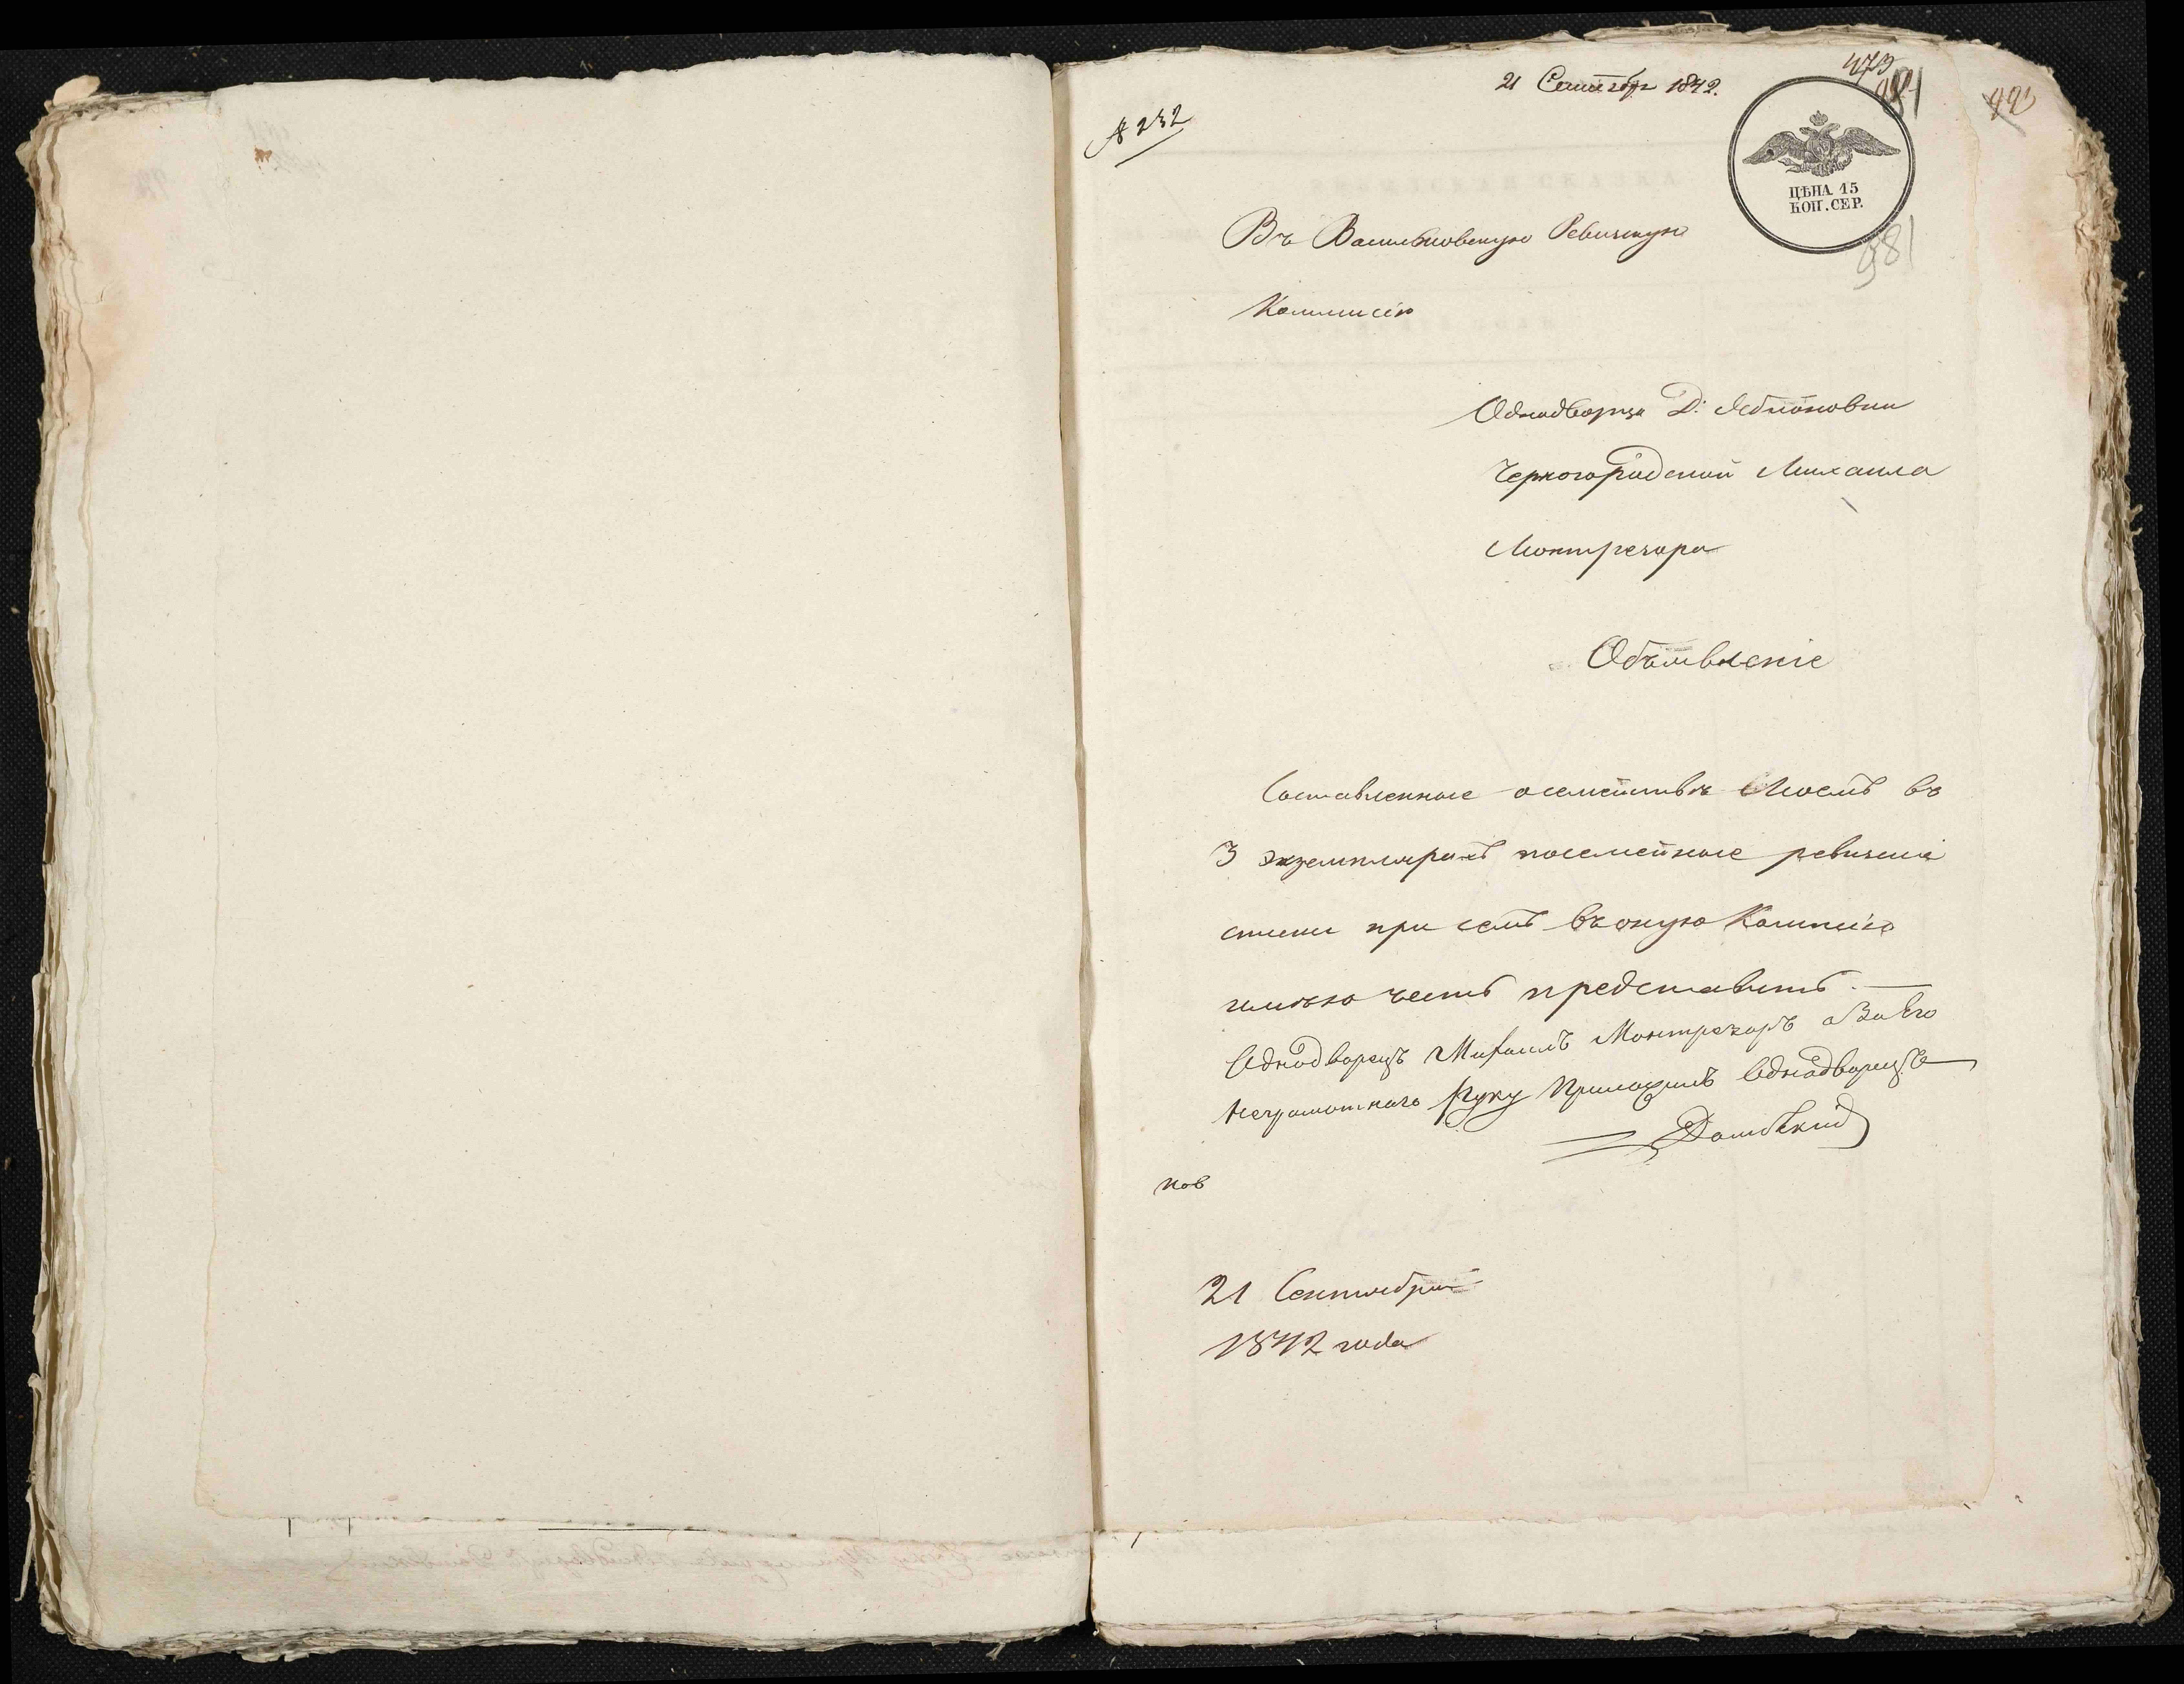 21 Сентября 1842.
№ 232
473
981
ЦѢНА 15
КОП. СЕР.
981
Въ Васильковскую Ревизскую
Коммисію
Однодворца Д: Яблоновки
Черногородской Михаила
Монтрезора
Объявленіе
Составленные о семействѣ Моемъ въ
3 экземплярахъ посемейные ревизскіе
списки при семъ въ оную Коммисію
имѣю честь представить. —
Однодворецъ Михаилъ Монтрезоръ а За Его
неграмотнаго Руку Приложилъ Однодворецъ
21 Сентября
1842 года